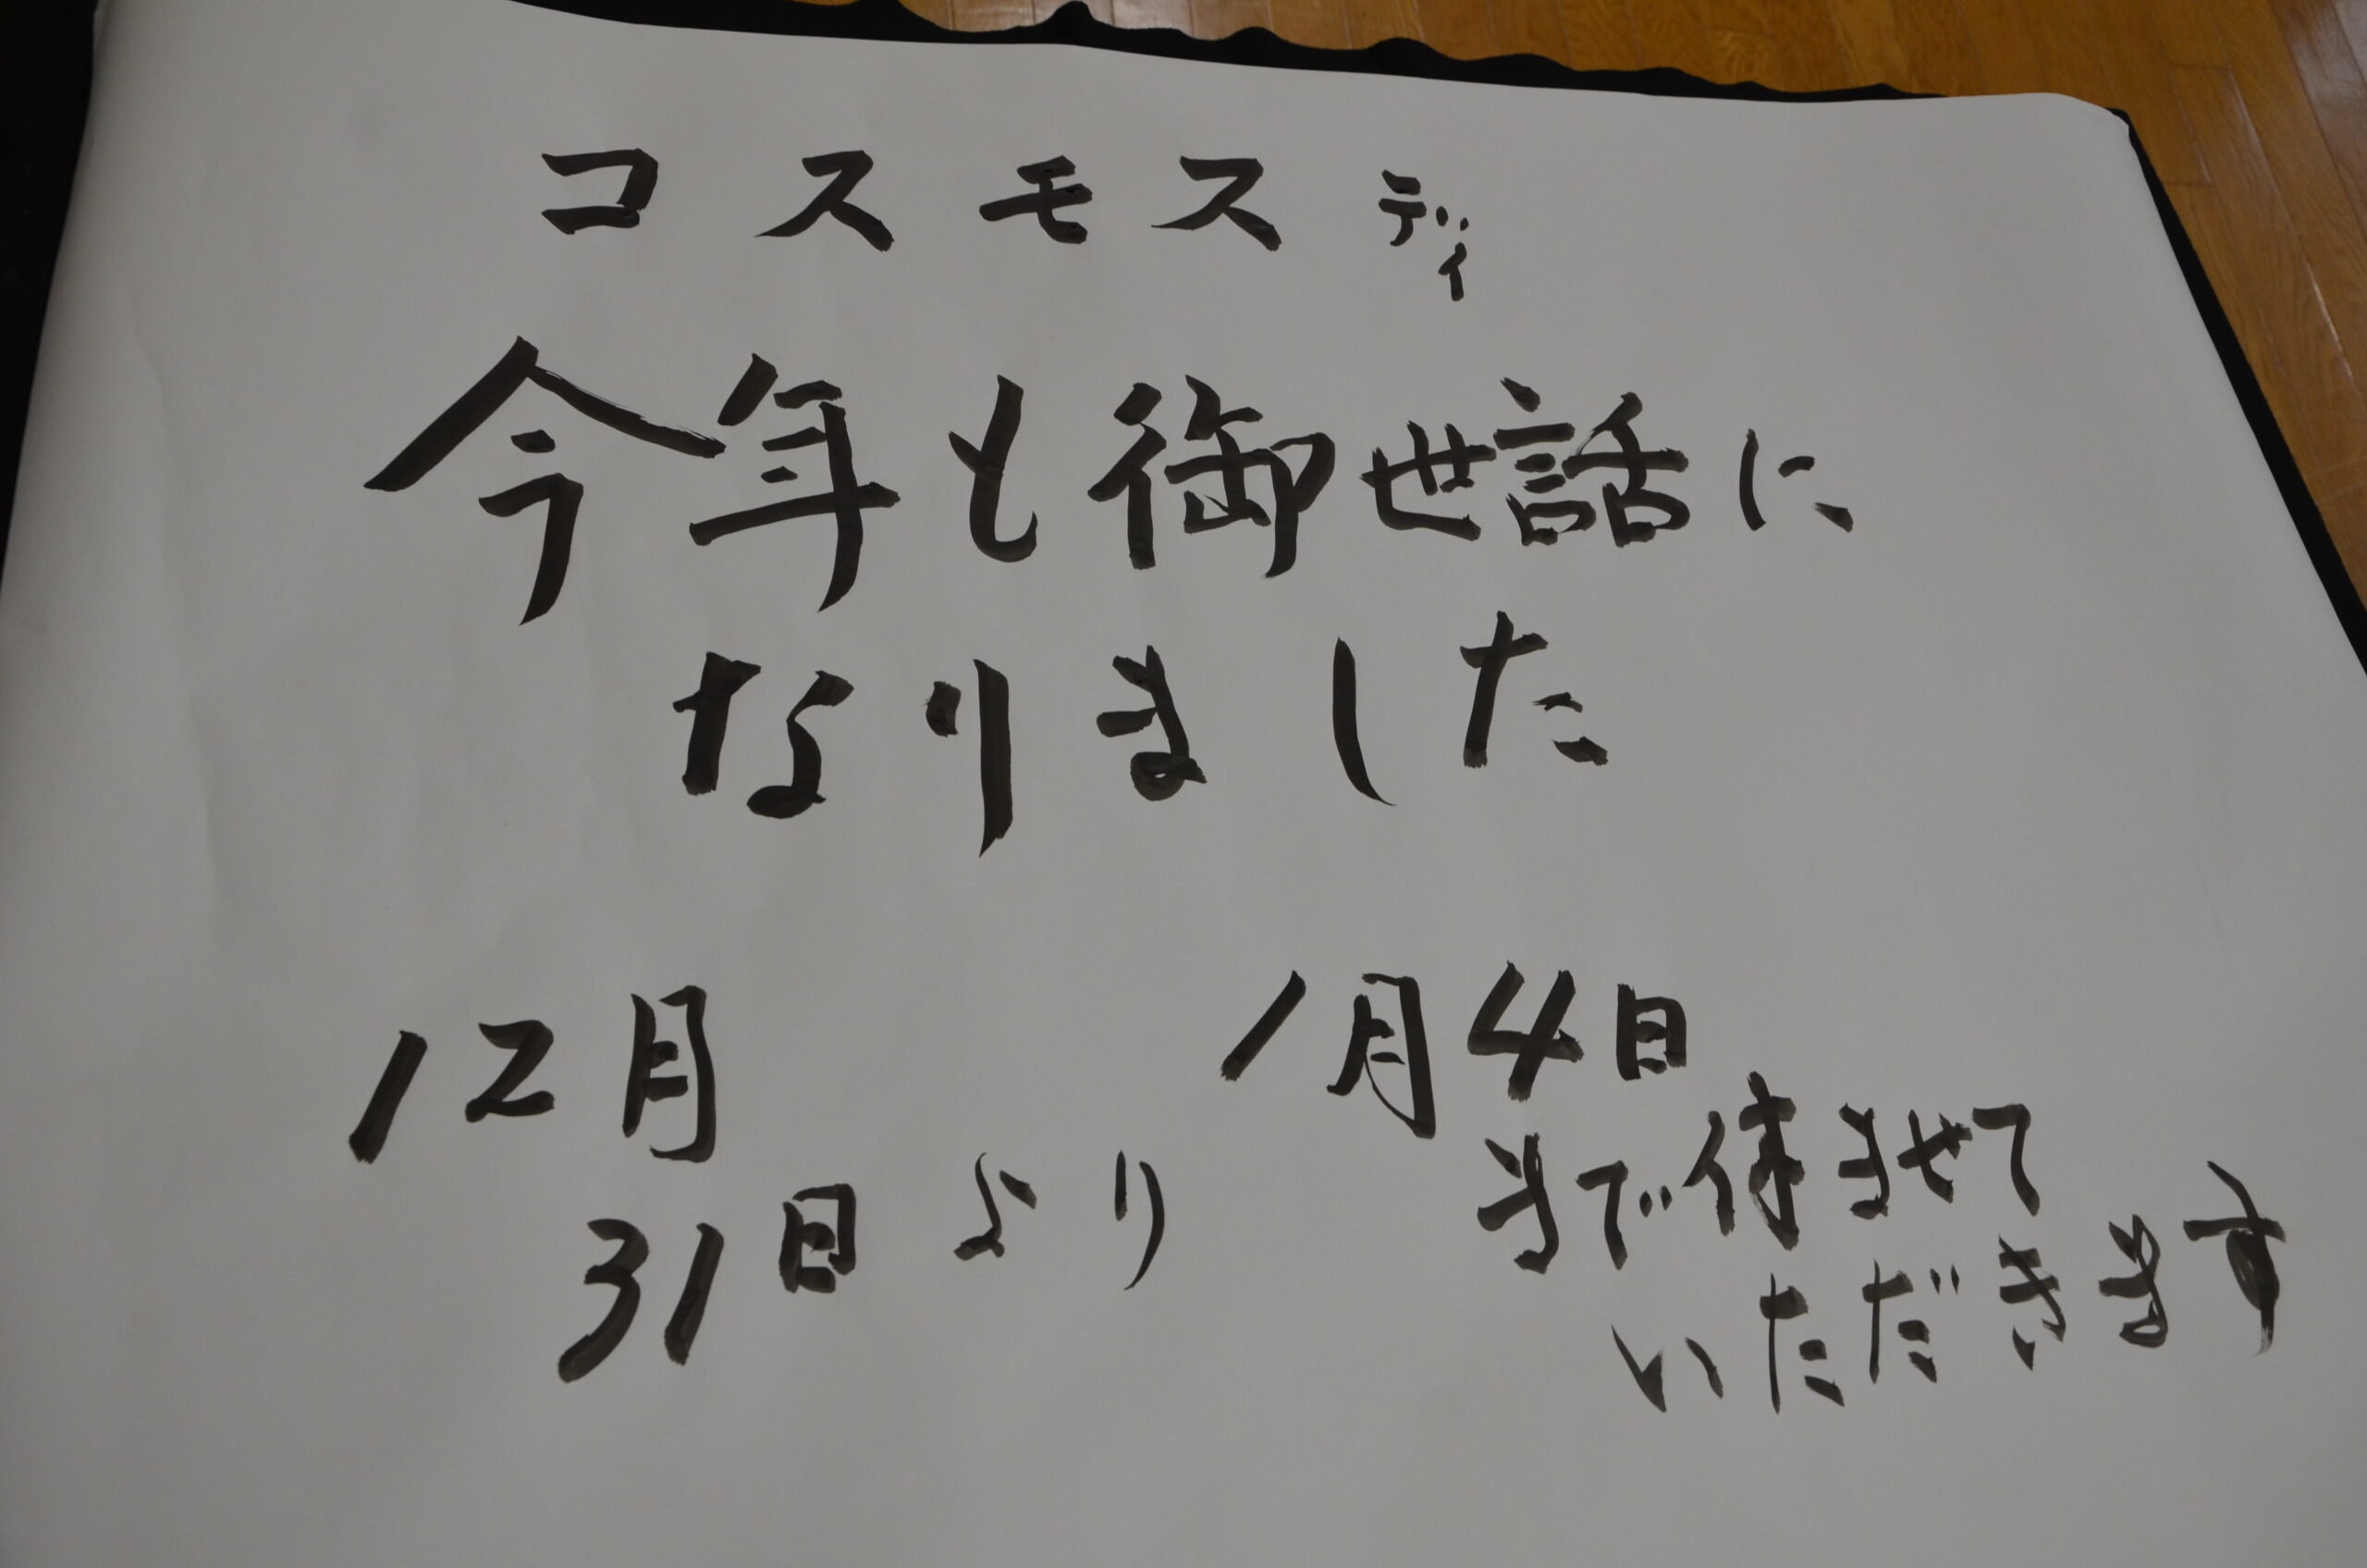 コスモスディ
今年も御世話に
なりました
12月
31日より
1月4日
まで休ませて
いただきます